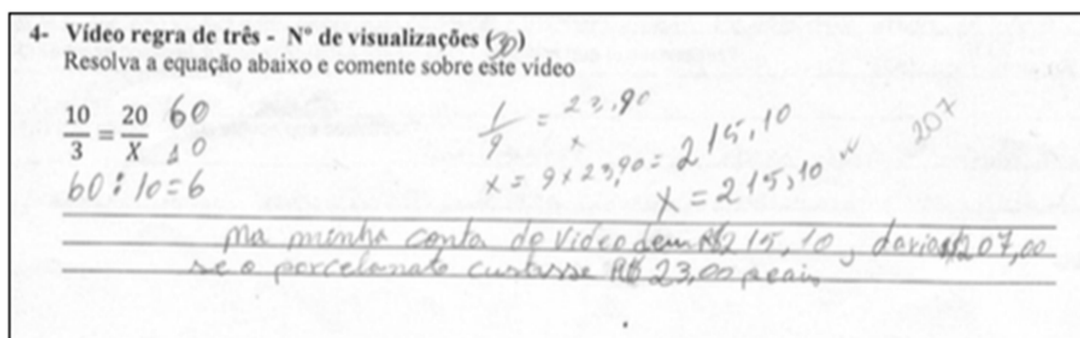 4- Vídeo regra de três - Nº de visualizações (30)
Resolva a equação abaixo e comente sobre este vídeo
10/3 = 20/X 60
10
60 : 10 = 6
1/9 = 23,90/x
x = 9 x 23,90 = 215,10
x = 215,10
207
na minha conta do video deu R$ 215,10, daria R$ 207,00
se o porcelanato custasse R$ 23,00 reais